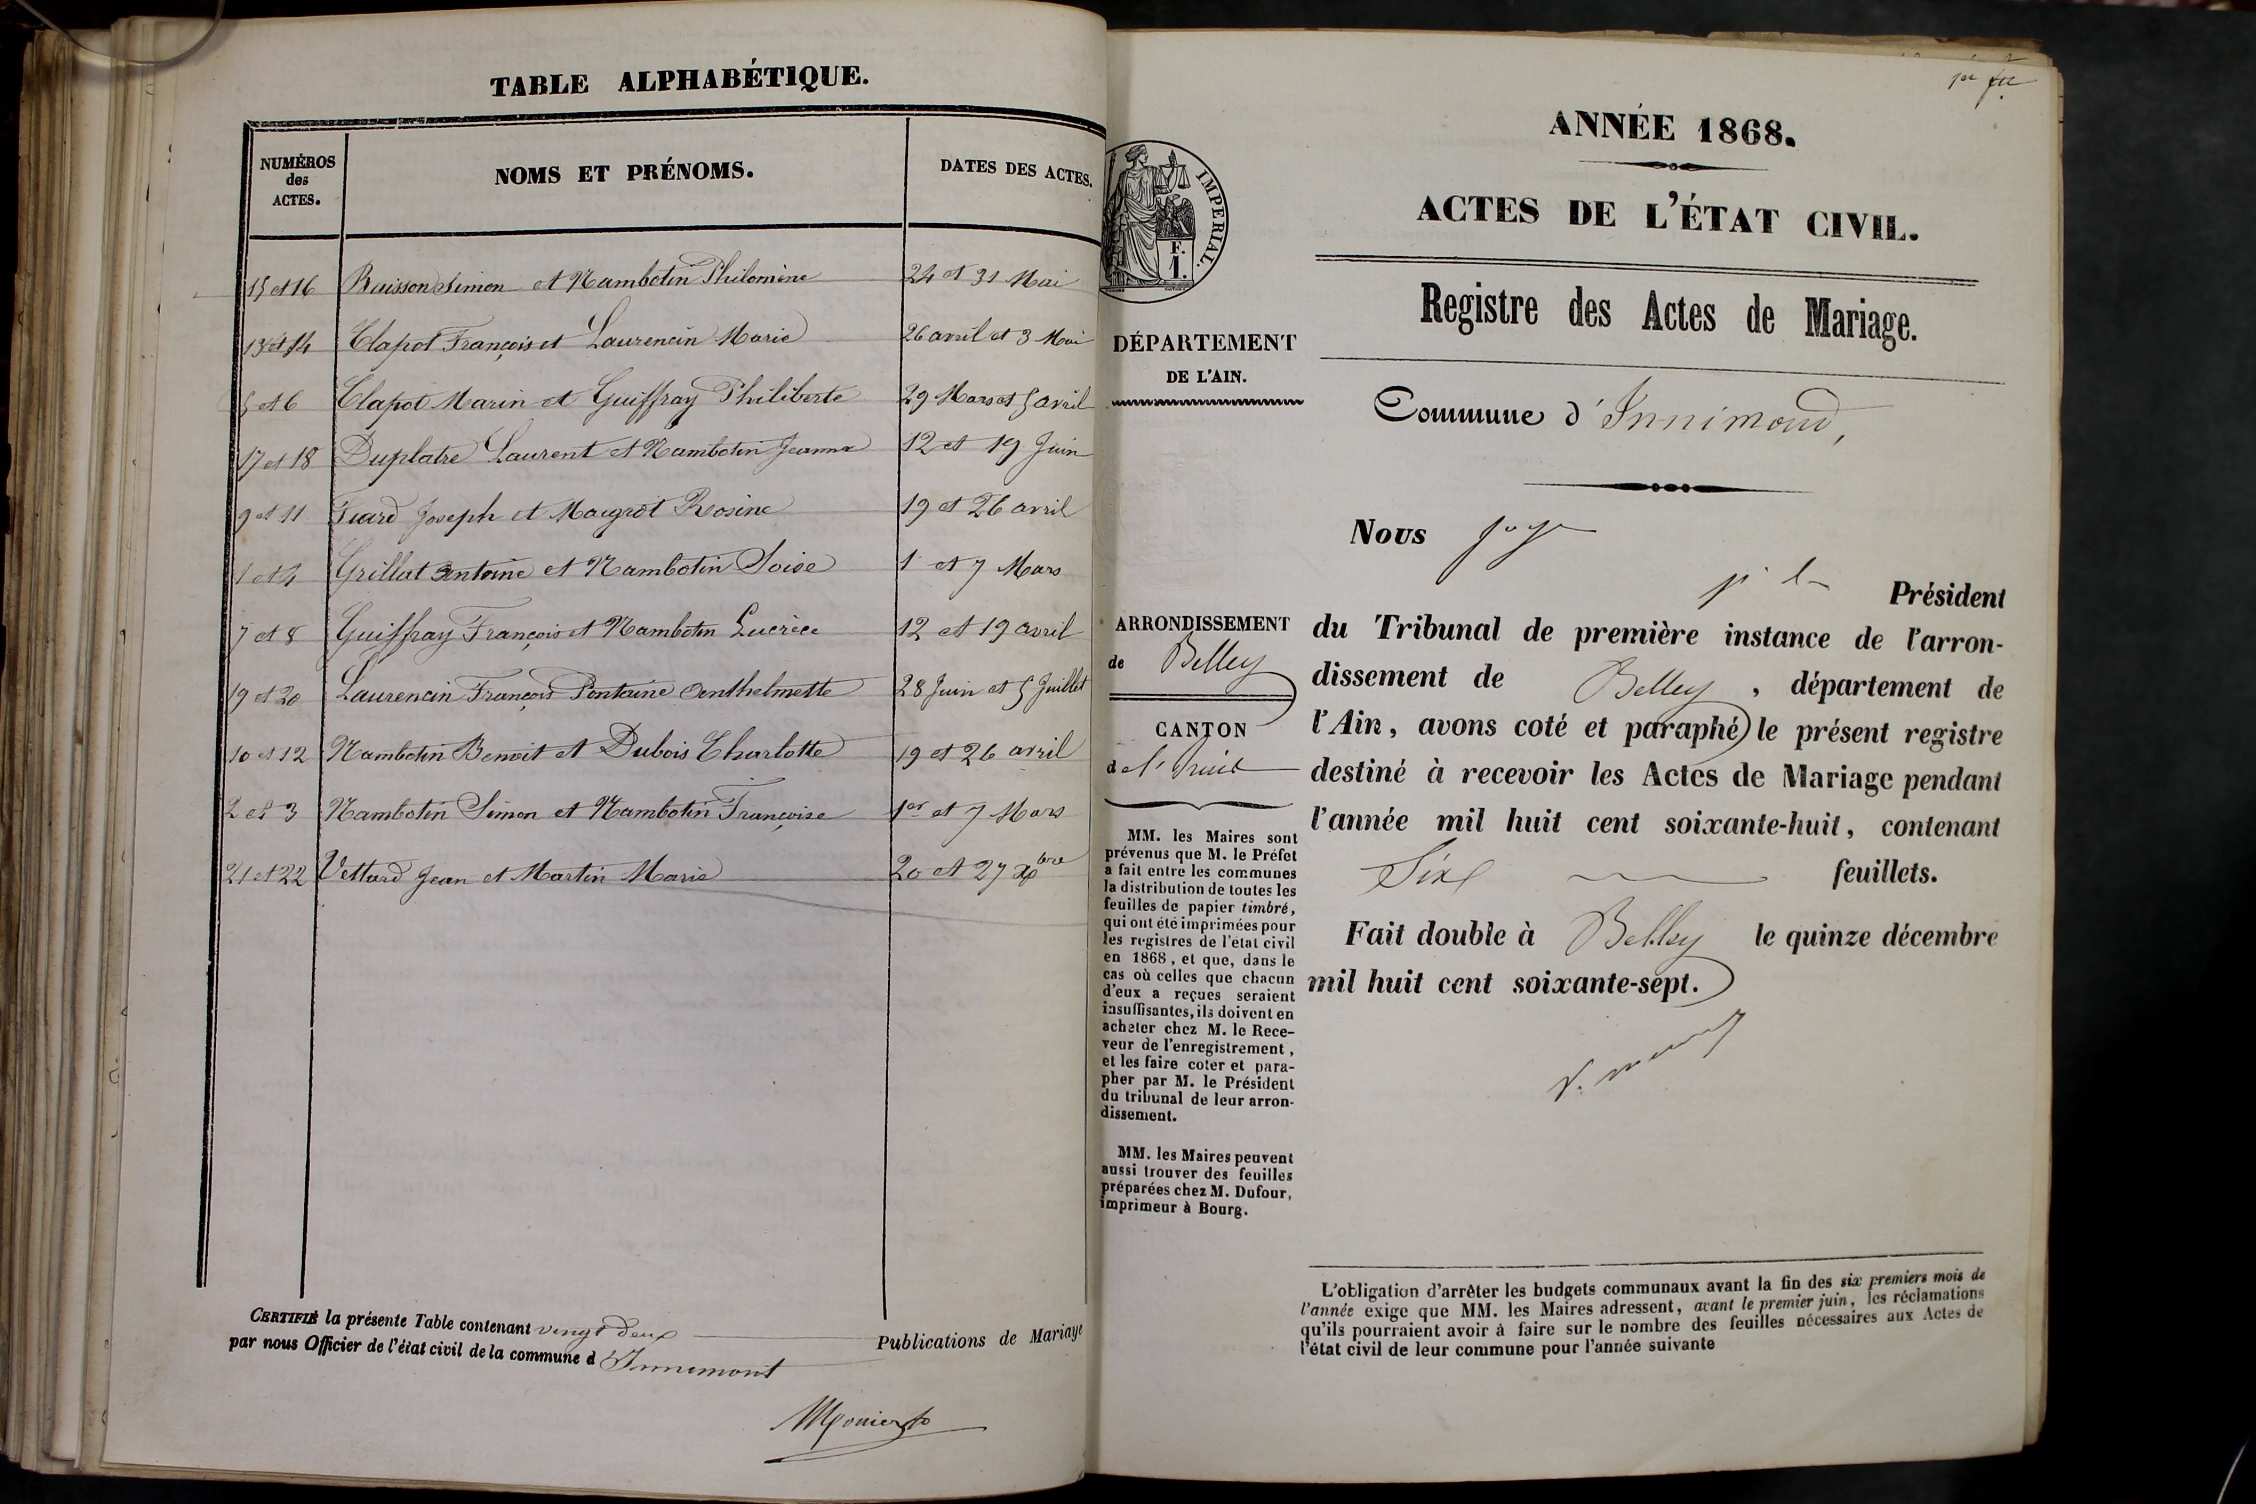 TABLE ALPHABÉTIQUE.
NUMÉROS
des
ACTES.
NOMS ET PRÉNOMS.
DATES DES ACTES.
15 et 16 Buisson Simon et Nambotin Philomène 24 et 31 Mai
13 et 14 Clapot François et Laurencin Marie 26 avril et 3 Mai
5 et 6 Clapot Marin et Guiffray Philiberte 29 Mars et 5 avril
17 et 18 Duplatre Laurent et Nambotin Jeanne 12 et 19 Juin
9 et 11 Joseph et Maigrot Rosine 19 et 26 avril
1 et 4 Grillat antoine et Nambotin 1 et 7 Mars
7 et 8 Guiffray François et Nambotin Lucrèce 12 et 19 avril
19 et 20 Laurencin François Pontaine anthelmette 28 Juin et 5 Juillet
10 et 12 Nambotin Benoit et Dubois Charlotte 19 et 26 avril
2 et 3 Nambotin Simon et Nambotin Françoise 1er et 7 Mars
21 et 22 Vettard Jean et Martin Marie 20 et 27 Xbre
CERTIFIÉ la présente Table contenant vingt deux Publications de Mariage
par nous Officier de l'état civil de la commune d'Innimont
Monier
1er
IMPERIAL.
F.
1.
DÉPARTEMENT
DE L'AIN.
ARRONDISSEMENT
de Belley
CANTON
d
MM. les Maires sont
prévenus que M. le Préfet
a fait entre les communes
la distribution de toutes les
feuilles de papier timbré,
qui ont été imprimées pour
les registres de l'état civil
en 1868, et que, dans le
cas où celles que chacun
d'eux a reçues seraient
insuffisantes, ils doivent en
acheter chez M. le Rece-
veur de l'enregistrement,
et les faire coter et para-
pher par M. le Président
du tribunal de leur arron-
dissement.
MM. les Maires peuvent
aussi trouver des feuilles
préparées chez M. Dufour,
imprimeur à Bourg.
ANNÉE 1868.
ACTES DE L'ÉTAT CIVIL.
Registre des Actes de Mariage.
Commune d'Innimond,
Nous juge
Président
du Tribunal de première instance de l'arron-
dissement de Belley, département de
l'Ain, avons coté et paraphé le présent registre
destiné à recevoir les Actes de Mariage pendant
l'année mil huit cent soixante-huit, contenant
Six feuillets.
Fait double à Belley le quinze décembre
mil huit cent soixante-sept.
L'obligation d'arrêter les budgets communaux avant la fin des six premiers mois de
l'année exige que MM. les Maires adressent, avant le premier juin, les réclamations
qu'ils pourraient avoir à faire sur le nombre des feuilles nécessaires aux Actes de
l'état civil de leur commune pour l'année suivante